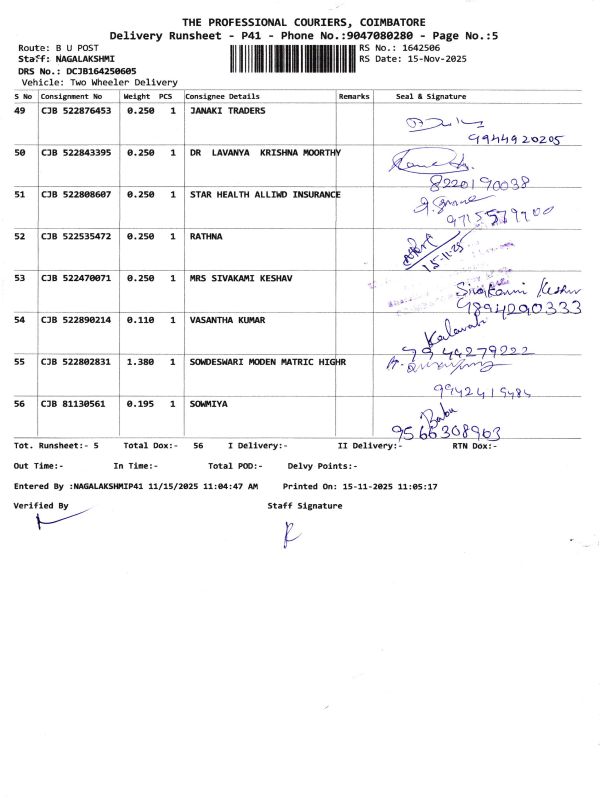 THE PROFESSIONAL COURIERS, COIMBATORE
Delivery Runsheet - P41 - Phone No.:9047080280 - Page No.:5
Route: B U POST RS No.: 1642506
Staff: NAGALAKSHMI RS Date: 15-Nov-2025
DRS No.: DCJB164250605
Vehicle: Two Wheeler Delivery
S No Consignment No Weight PCS Consignee Details Remarks Seal & Signature
49 CJB 522876453 0.250 1 JANAKI TRADERS
9944920205
50 CJB 522843395 0.250 1 DR LAVANYA KRISHNA MOORTHY
8220190038
51 CJB 522808607 0.250 1 STAR HEALTH ALLIWD INSURANCE
52 CJB 522535472 0.250 1 RATHNA
15-11-25
53 CJB 522470071 0.250 1 MRS SIVAKAMI KESHAV
Sivakami Keshav
9894290333
54 CJB 522890214 0.110 1 VASANTHA KUMAR
Kalavati
9944279222
55 CJB 522802831 1.380 1 SOWDESWARI MODEN MATRIC HIGHR
9942419484
56 CJB 81130561 0.195 1 SOWMIYA
Babu
9566308963
Tot. Runsheet:- 5 Total Dox:- 56 I Delivery:- II Delivery:- RTN Dox:-
Out Time:- In Time:- Total POD:- Delvy Points:-
Entered By :NAGALAKSHMIP41 11/15/2025 11:04:47 AM Printed On: 15-11-2025 11:05:17
Verified By Staff Signature